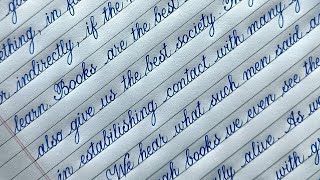 good, in fa
ething, in
r indirectly, if the
learn. Books are the best society. I
also give us the best
in estabilishing contact with many
We hear what such men said a
books we even see the
ally alive. As w
with g